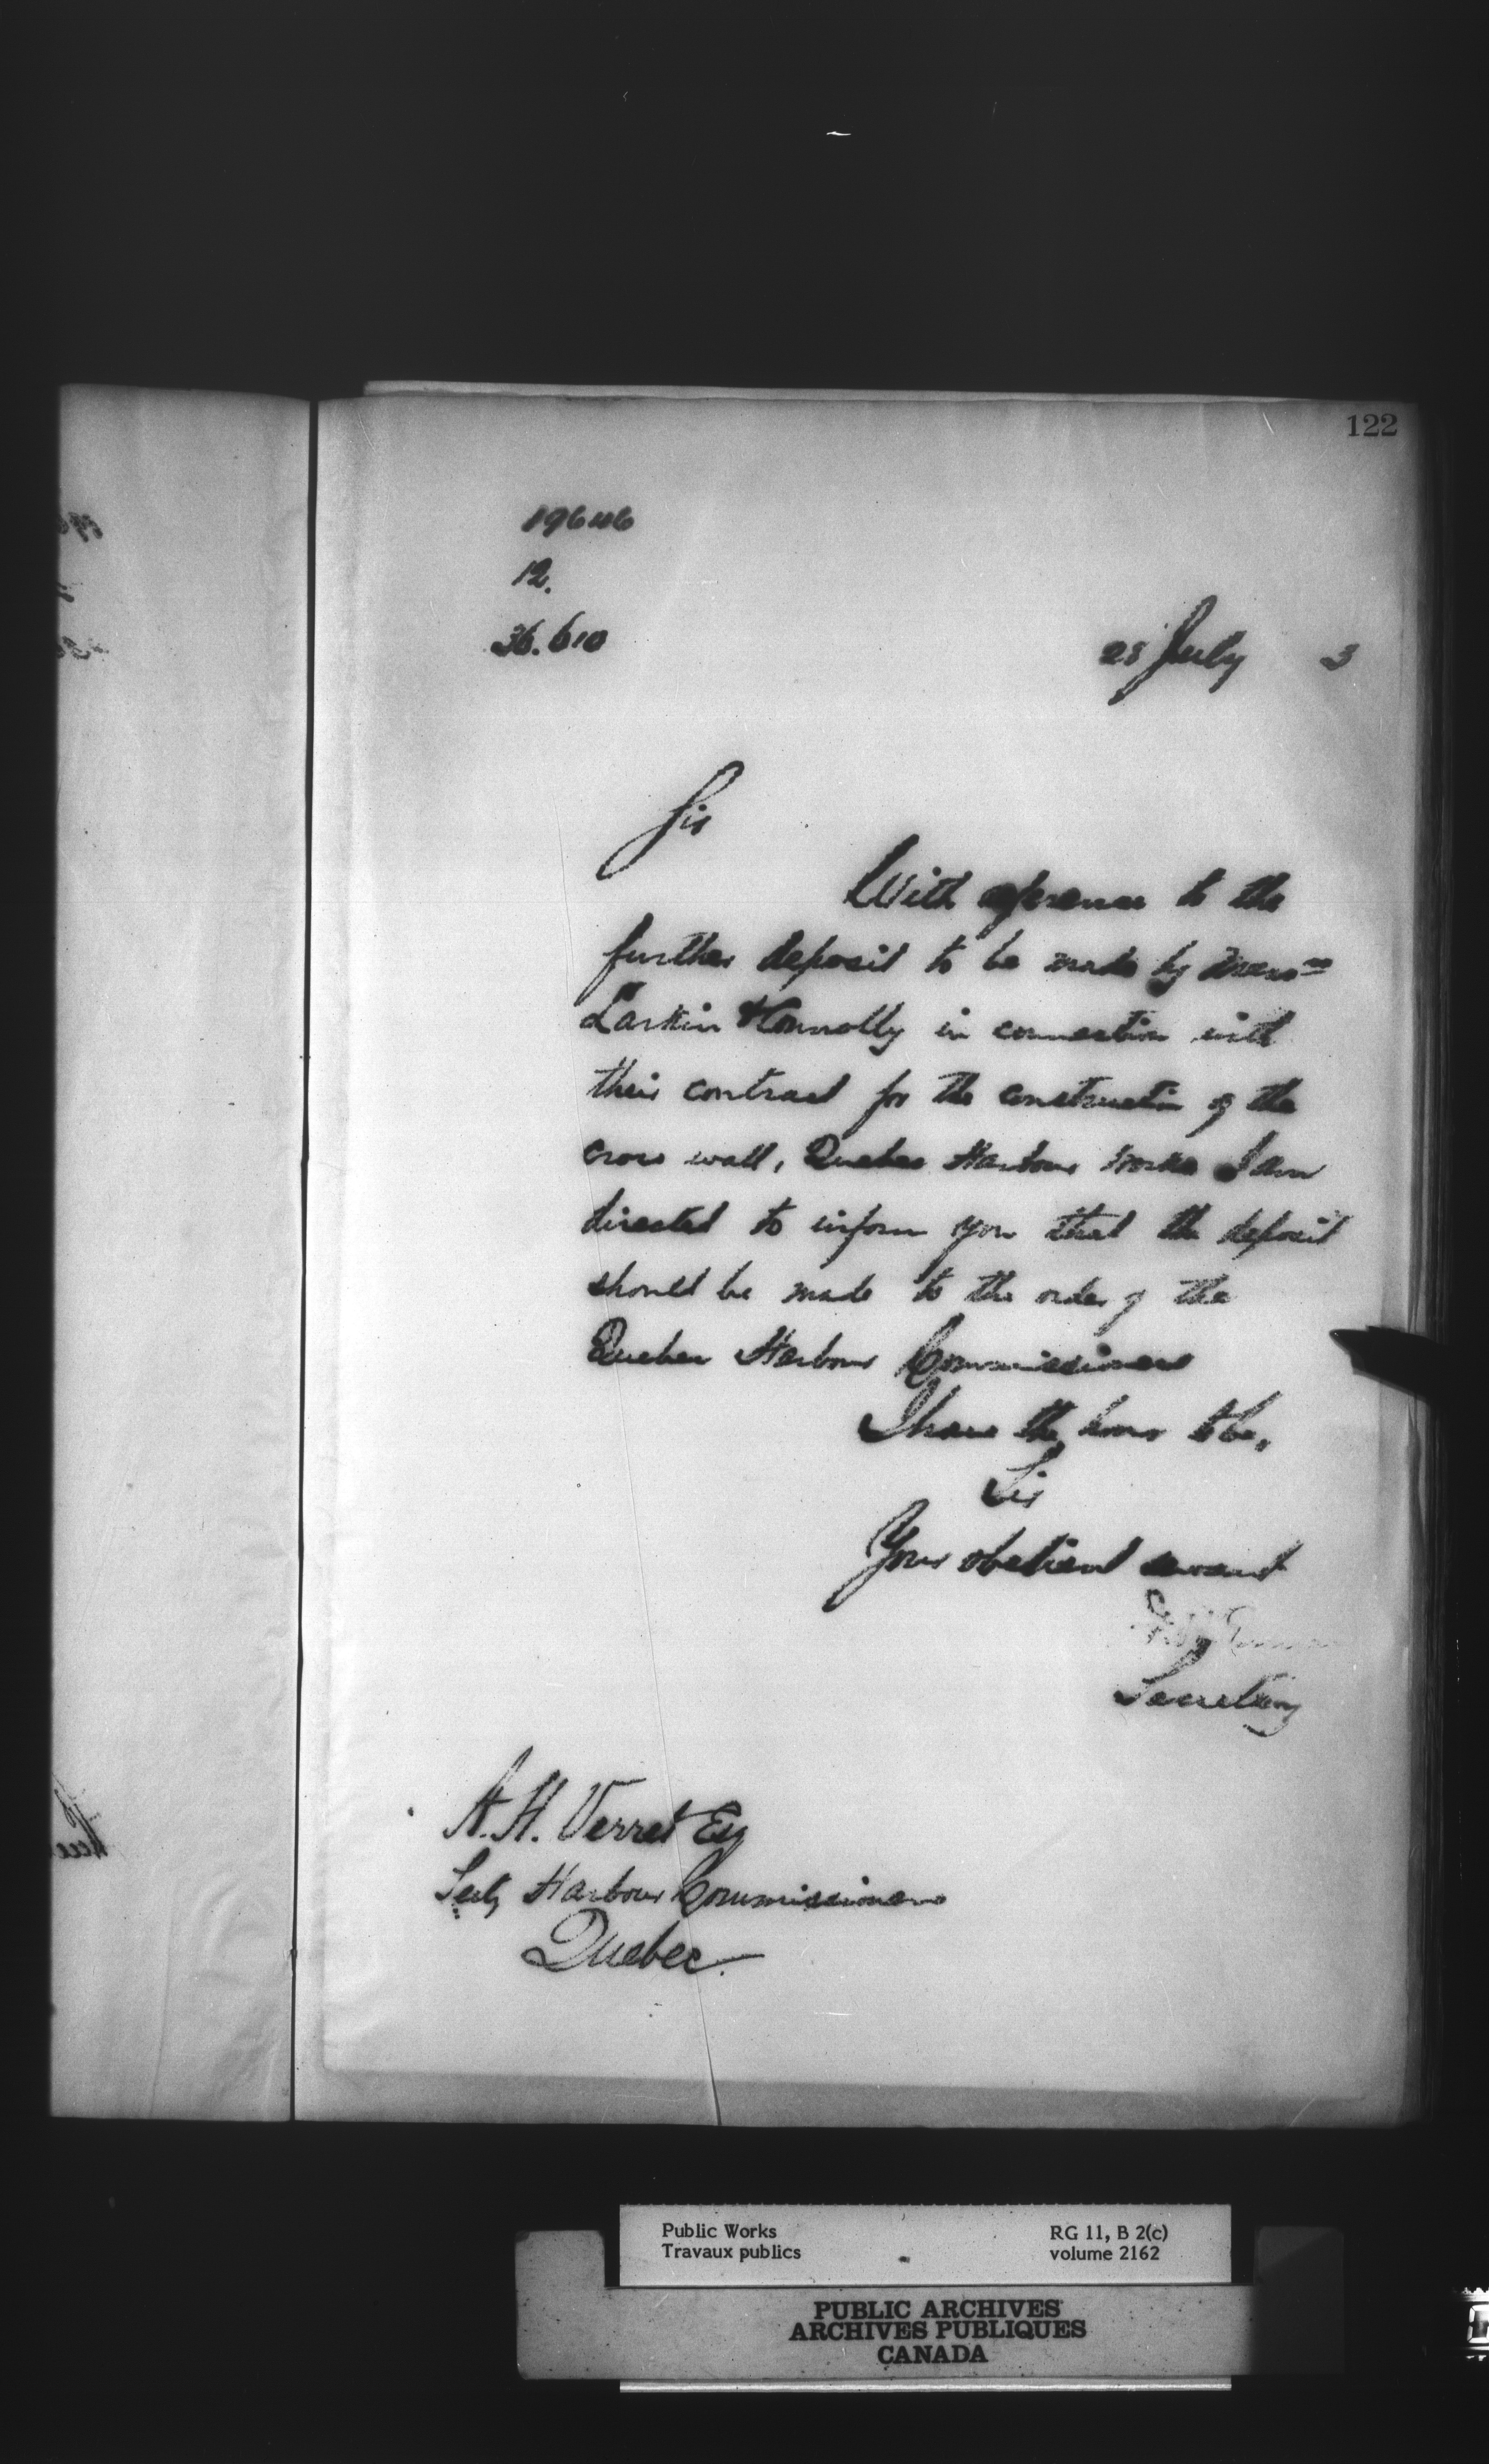 122
19646
12.
36.610
28 July 3
Sir
With reference to the
further deposit to be made by Messrs
Larkin & Connolly in connection with
their contract for the construction of the
cross wall, Quebec Harbour Works I am
directed to inform you that the deposit
should be made to the order of the
Quebec Harbour Commissioners
I have the honor to be,
Sir
Your obedient servant
Secretary
A. H. Verret Esq
Secty Harbour Commissioners
Quebec.
Public Works
Travaux publics
RG 11, B 2(c)
volume 2162
PUBLIC ARCHIVES
ARCHIVES PUBLIQUES
CANADA